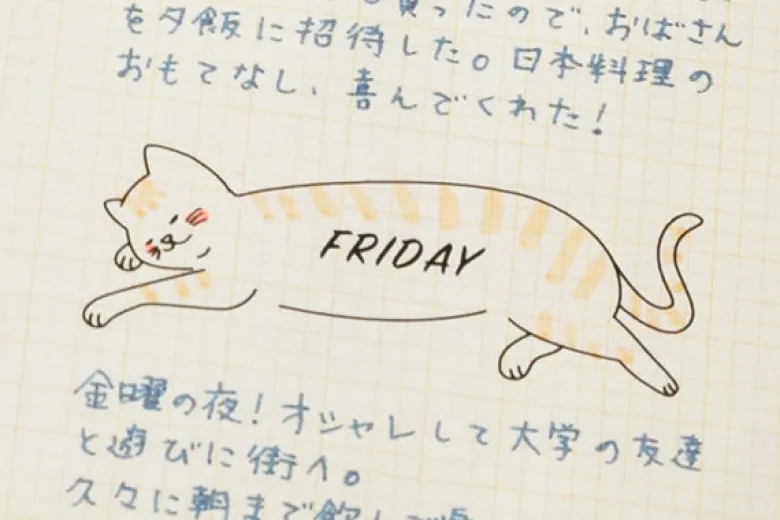 買ったので、おばさん
を夕飯に招待した。日本料理の
おもてなし、喜んでくれた!
FRIDAY
金曜の夜!オシャレして大学の友達
と遊びに街へ。
久々に朝まで飲んで